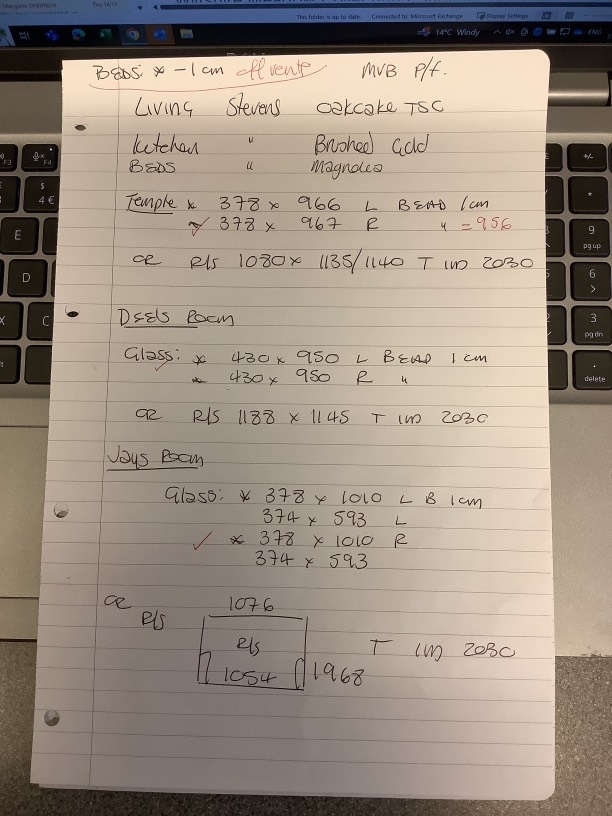 This folder is up to date. Connected to: Microsoft Exchange Display Settings
14°C Windy ENG
BEDS: * -1cm off vents MVB P/f.
Living Stevens oakcake TSC
Kitchen " Brushed Gold
BEDS " Magnolia
Temple * 378 x 966 L BEAD 1cm
* 378 x 967 R " = 956
OR R/s 1080 x 1135/1140 T IM 2030
DEELS ROOM
Glass: * 430 x 950 L BEAD 1cm
* 430 x 950 R "
OR R/S 1188 x 1145 T IM 2030
Jays Room
Glass: * 378 x 1010 L B 1cm
374 x 593 L
✓ * 378 x 1010 R
374 x 593
OR R/s
1076
R/s
1054 1968 T IM 2030
F3
F4
$
4 €
E
D
X
C
+/-
*
9
pg up
6
>
3
pg dn
delete